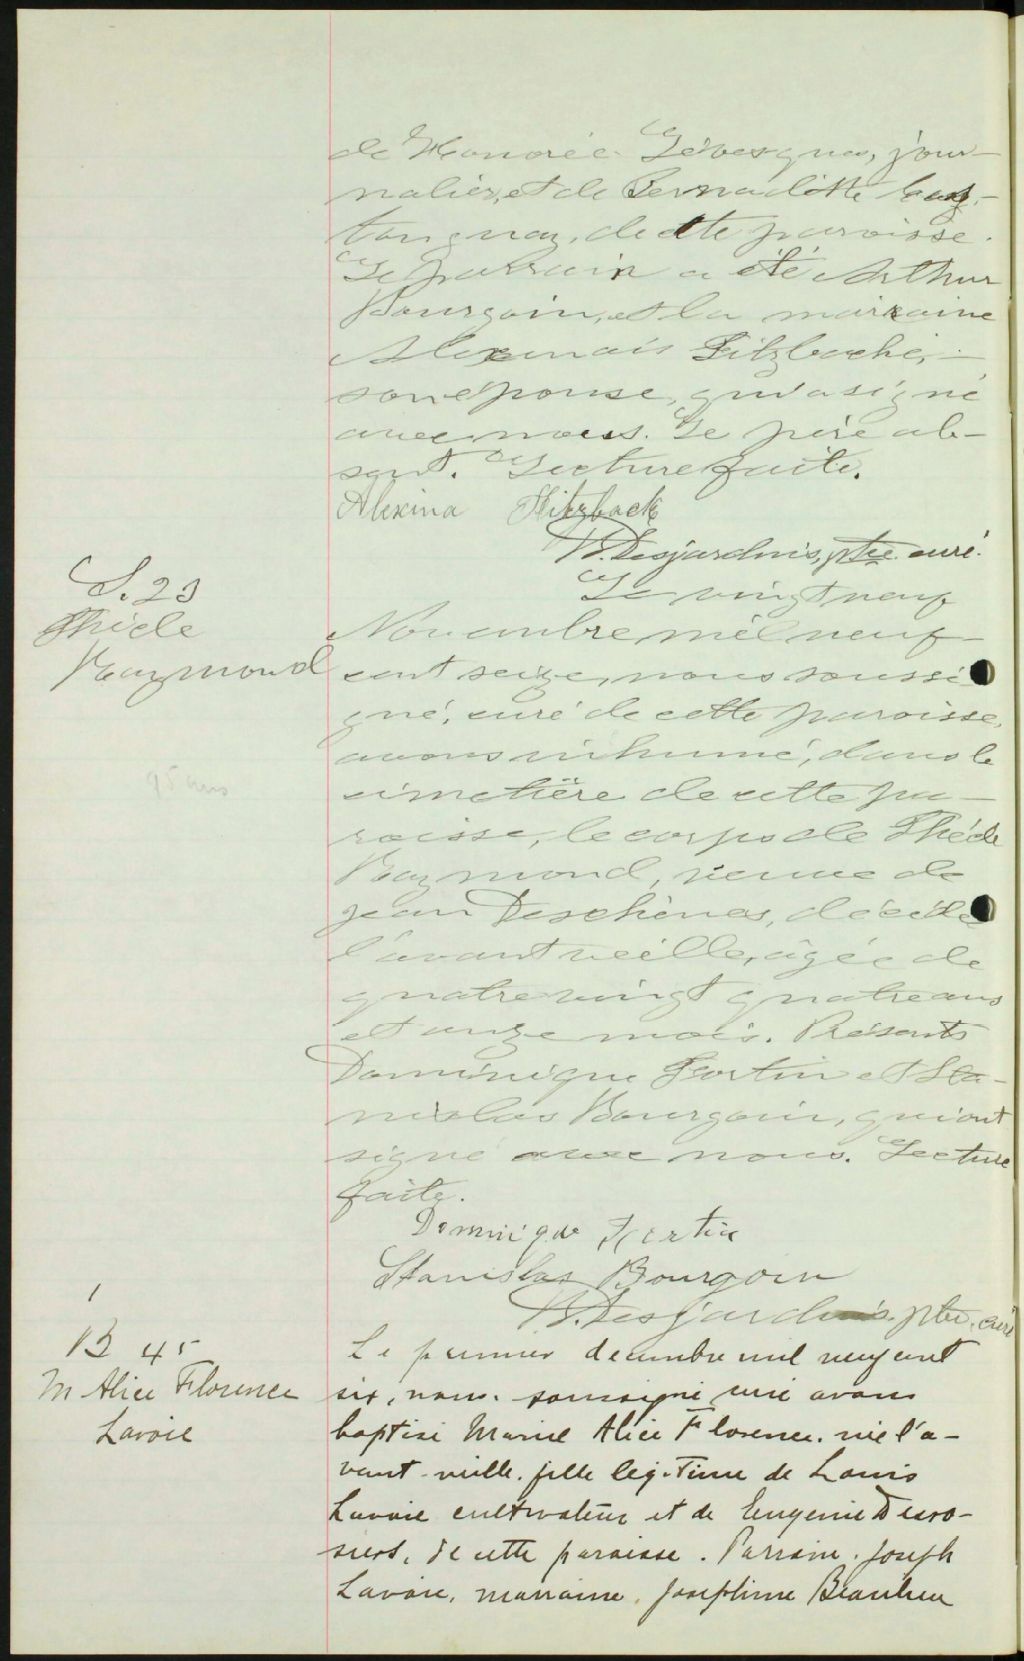 de Honoré Lévesque, jour-
nalier, et de Bernadette Cas-
tonguay, de cette paroisse.
Le parrain a été Arthur
Bourgoin, et la marraine
Alexina Hitzbach,
son épouse, qui a signé
avec nous. Le père ab-
sent. Lecture faite.
Alexina Hitzback
Desjardins, ptre curé.
S. 23
Thècle
Raymond
95 ans
Le vingt neuf
Novembre mil neuf
cent seize, nous soussi
gné, curé de cette paroisse,
avons inhumé, dans le
cimetière de cette pa-
roisse, le corps de Thècle
Raymond, veuve de
Jean Deschènes, décédée
l'avant veille, âgée de
quatre vingt quatre ans
et onze mois. Présents
Dominique Fortin et Sta-
nislas Bourgoin, qui ont
signé avec nous. Lecture
faite.
Dominique Fortin
Stanislas Bourgoin
Desjardins. ptre, curé
1
B 45
M Alice Florence
Lavoie
Le premier decembre mil neuf cent
six, nous soussigné curé avons
baptisé Marie Alice Florence. née l'a-
vant-veille. fille legitime de Louis
Lavoie cultivateur et de Eugenie Desro-
siers, de cette paroisse. Parrain. Joseph
Lavoie, marraine. Josephine Beaulieu